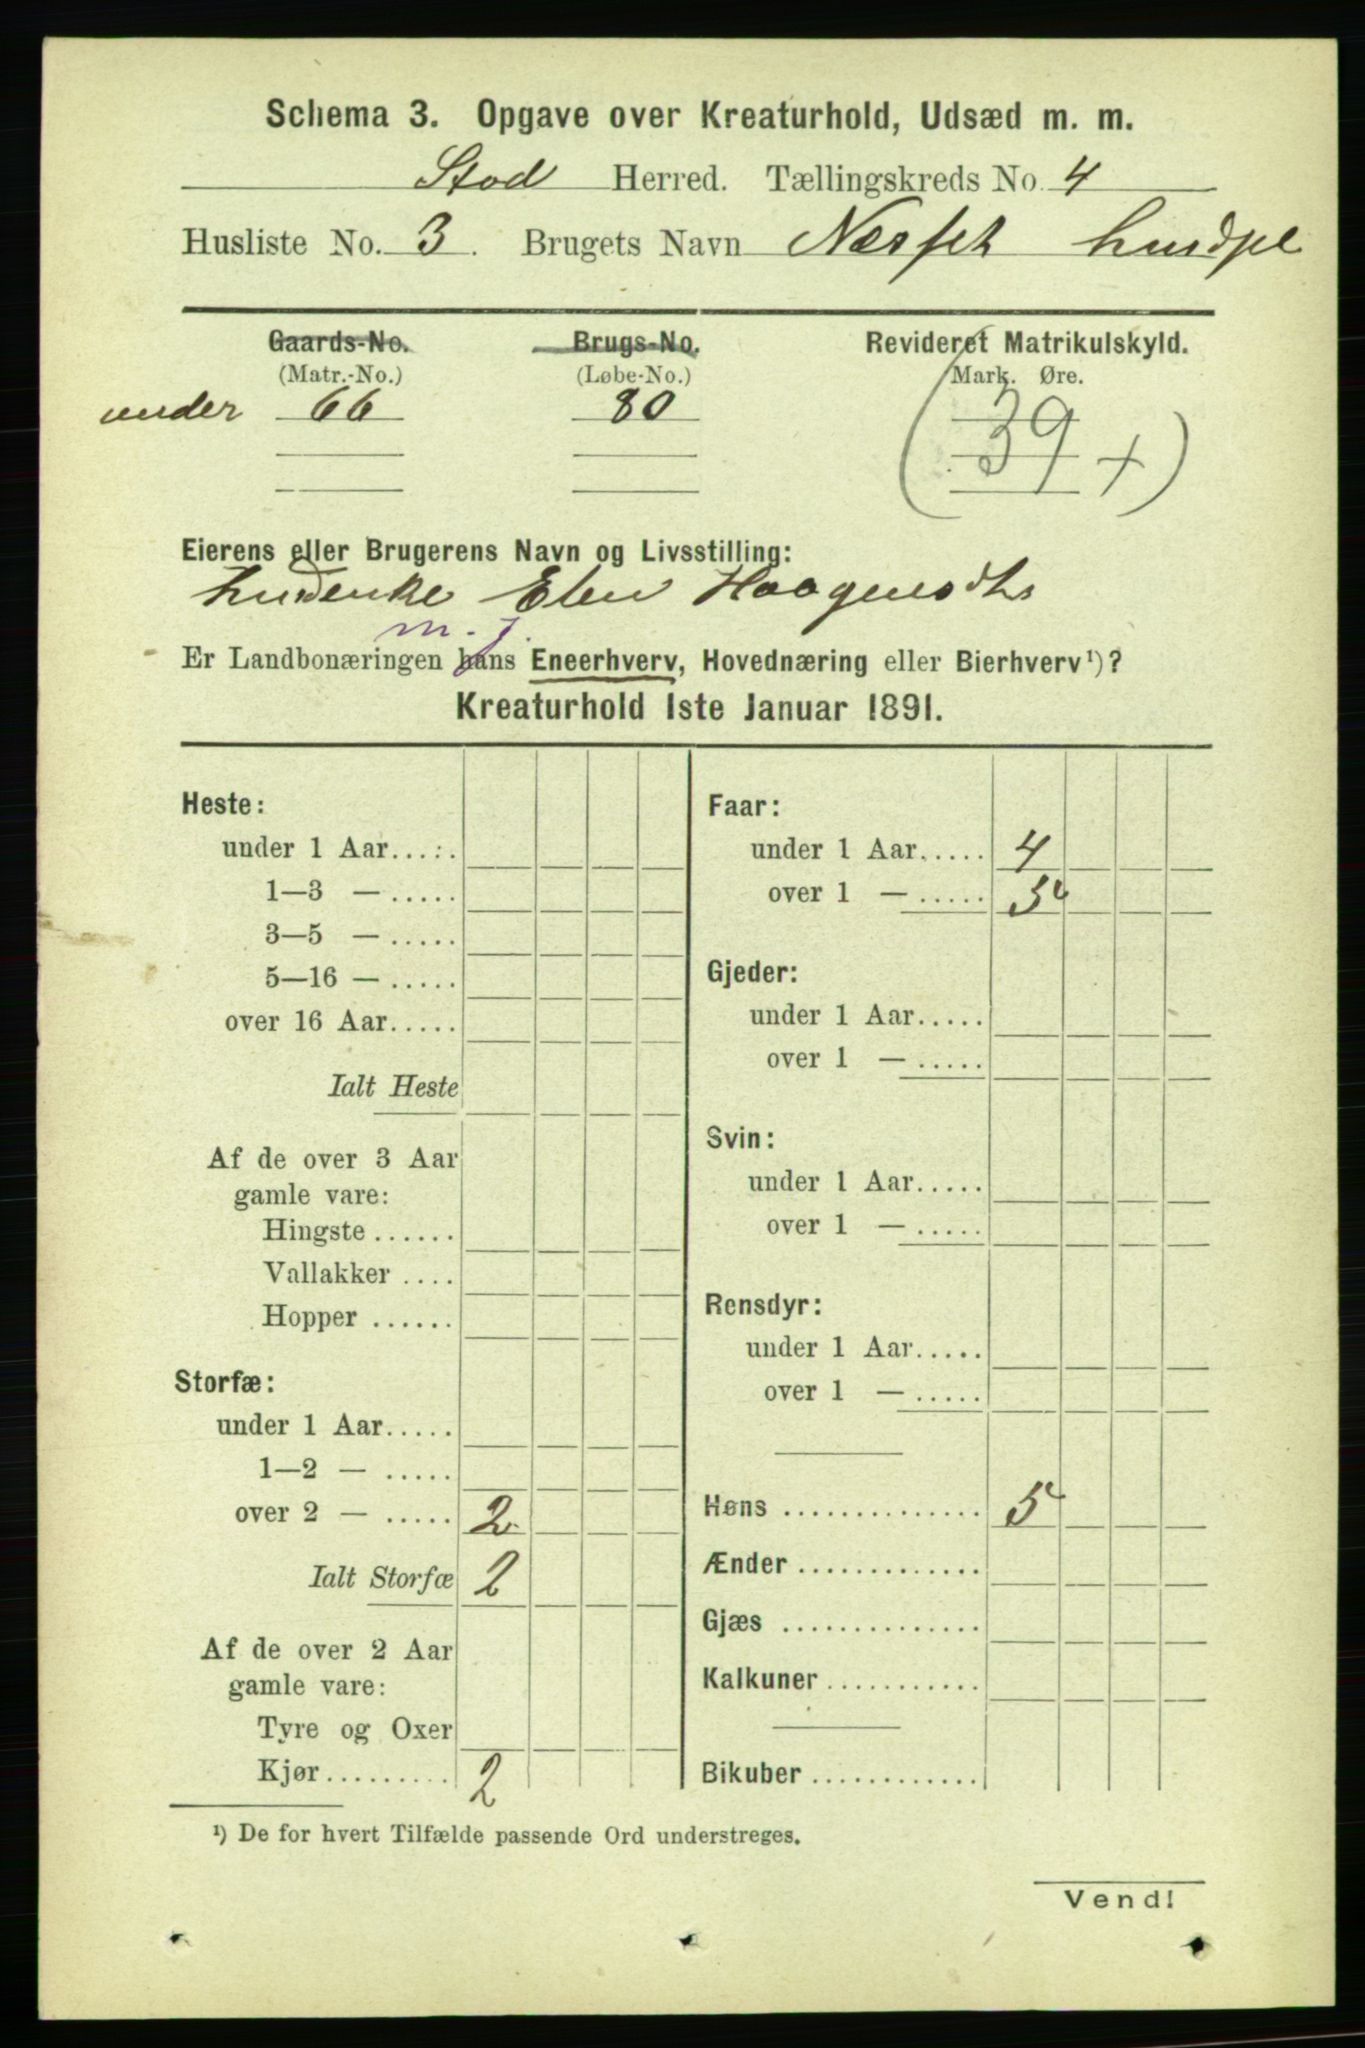 Schema 3. Opgave over Kreaturhold, Udsæd m. m.
Stod Herred. Tællingskreds No. 4
Husliste No. 3. Brugets Navn
Gaards-No. Brugs-No. Revideret Matrikulskyld.
(Matr.-No.) (Løbe-No.) Mark. Øre.
under 66 80
(39 +)
Eierens eller Brugerens Navn og Livsstilling:
Elen
m. j.
Er Landbonæringen hans Eneerhverv, Hovednæring eller Bierhverv¹)?
Kreaturhold 1ste Januar 1891.
Heste:
under 1 Aar.....
1—3 — .....
3—5 — .....
5—16 — .....
over 16 Aar.....
Ialt Heste
Af de over 3 Aar
gamle vare:
Hingste ......
Vallakker ....
Hopper ......
Storfæ:
under 1 Aar.....
1—2 — .....
over 2 — ..... 2
Ialt Storfæ 2
Af de over 2 Aar
gamle vare:
Tyre og Oxer
Kjør......... 2
Faar:
under 1 Aar..... 4
over 1 — ..... 5
Gjeder:
under 1 Aar.....
over 1 — .....
Svin:
under 1 Aar.....
over 1 — .....
Rensdyr:
under 1 Aar.....
over 1 — .....
Høns .............. 5
Ænder .............
Gjæs ..............
Kalkuner ...........
Bikuber ............
¹) De for hvert Tilfælde passende Ord understreges.
Vend!